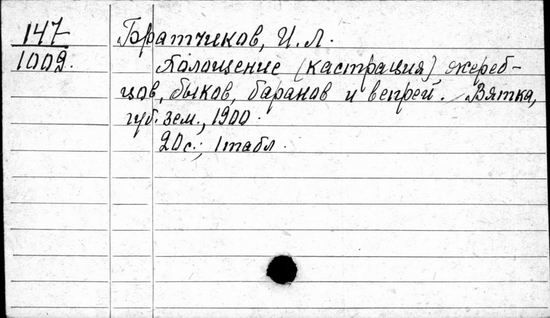 147
1009.
Братчиков, И. Л.
Холощение (кастрация) жереб-
цов, быков, баранов и вепрей. Вятка,
губ. зем., 1900.
20 с.; 1 табл.